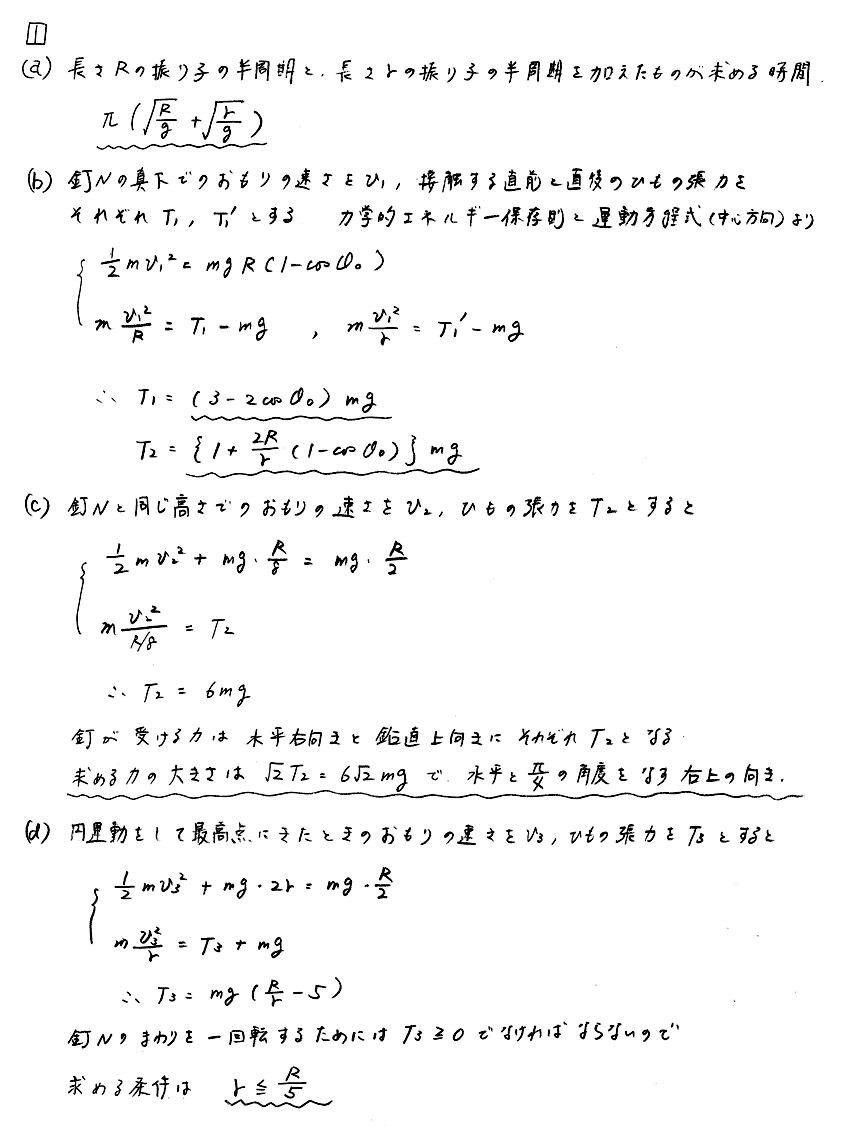 1
(a) 長さRの振り子の半周期と、長さrの振り子の半周期を加えたものが求める時間.
π(√(R/g) + √(r/g))
(b) 釘Nの真下でのおもりの速さをv₁, 接触する直前と直後のひもの張力を
それぞれ T₁, T₁' とする 力学的エネルギー保存則と運動方程式(中心方向)より
1/2 mv₁² = mgR(1-cosθ₀)
m v₁²/R = T₁ - mg , m v₁²/r = T₁' - mg
∴ T₁ = (3-2cosθ₀) mg
T₂ = {1 + 2R/r (1-cosθ₀)} mg
(c) 釘Nと同じ高さでのおもりの速さをv₂, ひもの張力をT₂とすると
1/2 mv₂² + mg・R/8 = mg・R/2
m v₂²/(R/8) = T₂
∴ T₂ = 6mg
釘が受ける力は水平右向きと鉛直上向きにそれぞれT₂となる
求める力の大きさは √2T₂ = 6√2mg で 水平とπ/4の角度をなす右上の向き.
(d) 円運動をして最高点にきたときのおもりの速さをv₃, ひもの張力をT₃とすると
1/2 mv₃² + mg・2r = mg・R/2
m v₃²/r = T₃ + mg
∴ T₃ = mg(R/r - 5)
釘Nのまわりを一回転するためには T₃≧0 でなければならないので
求める条件は r ≦ R/5